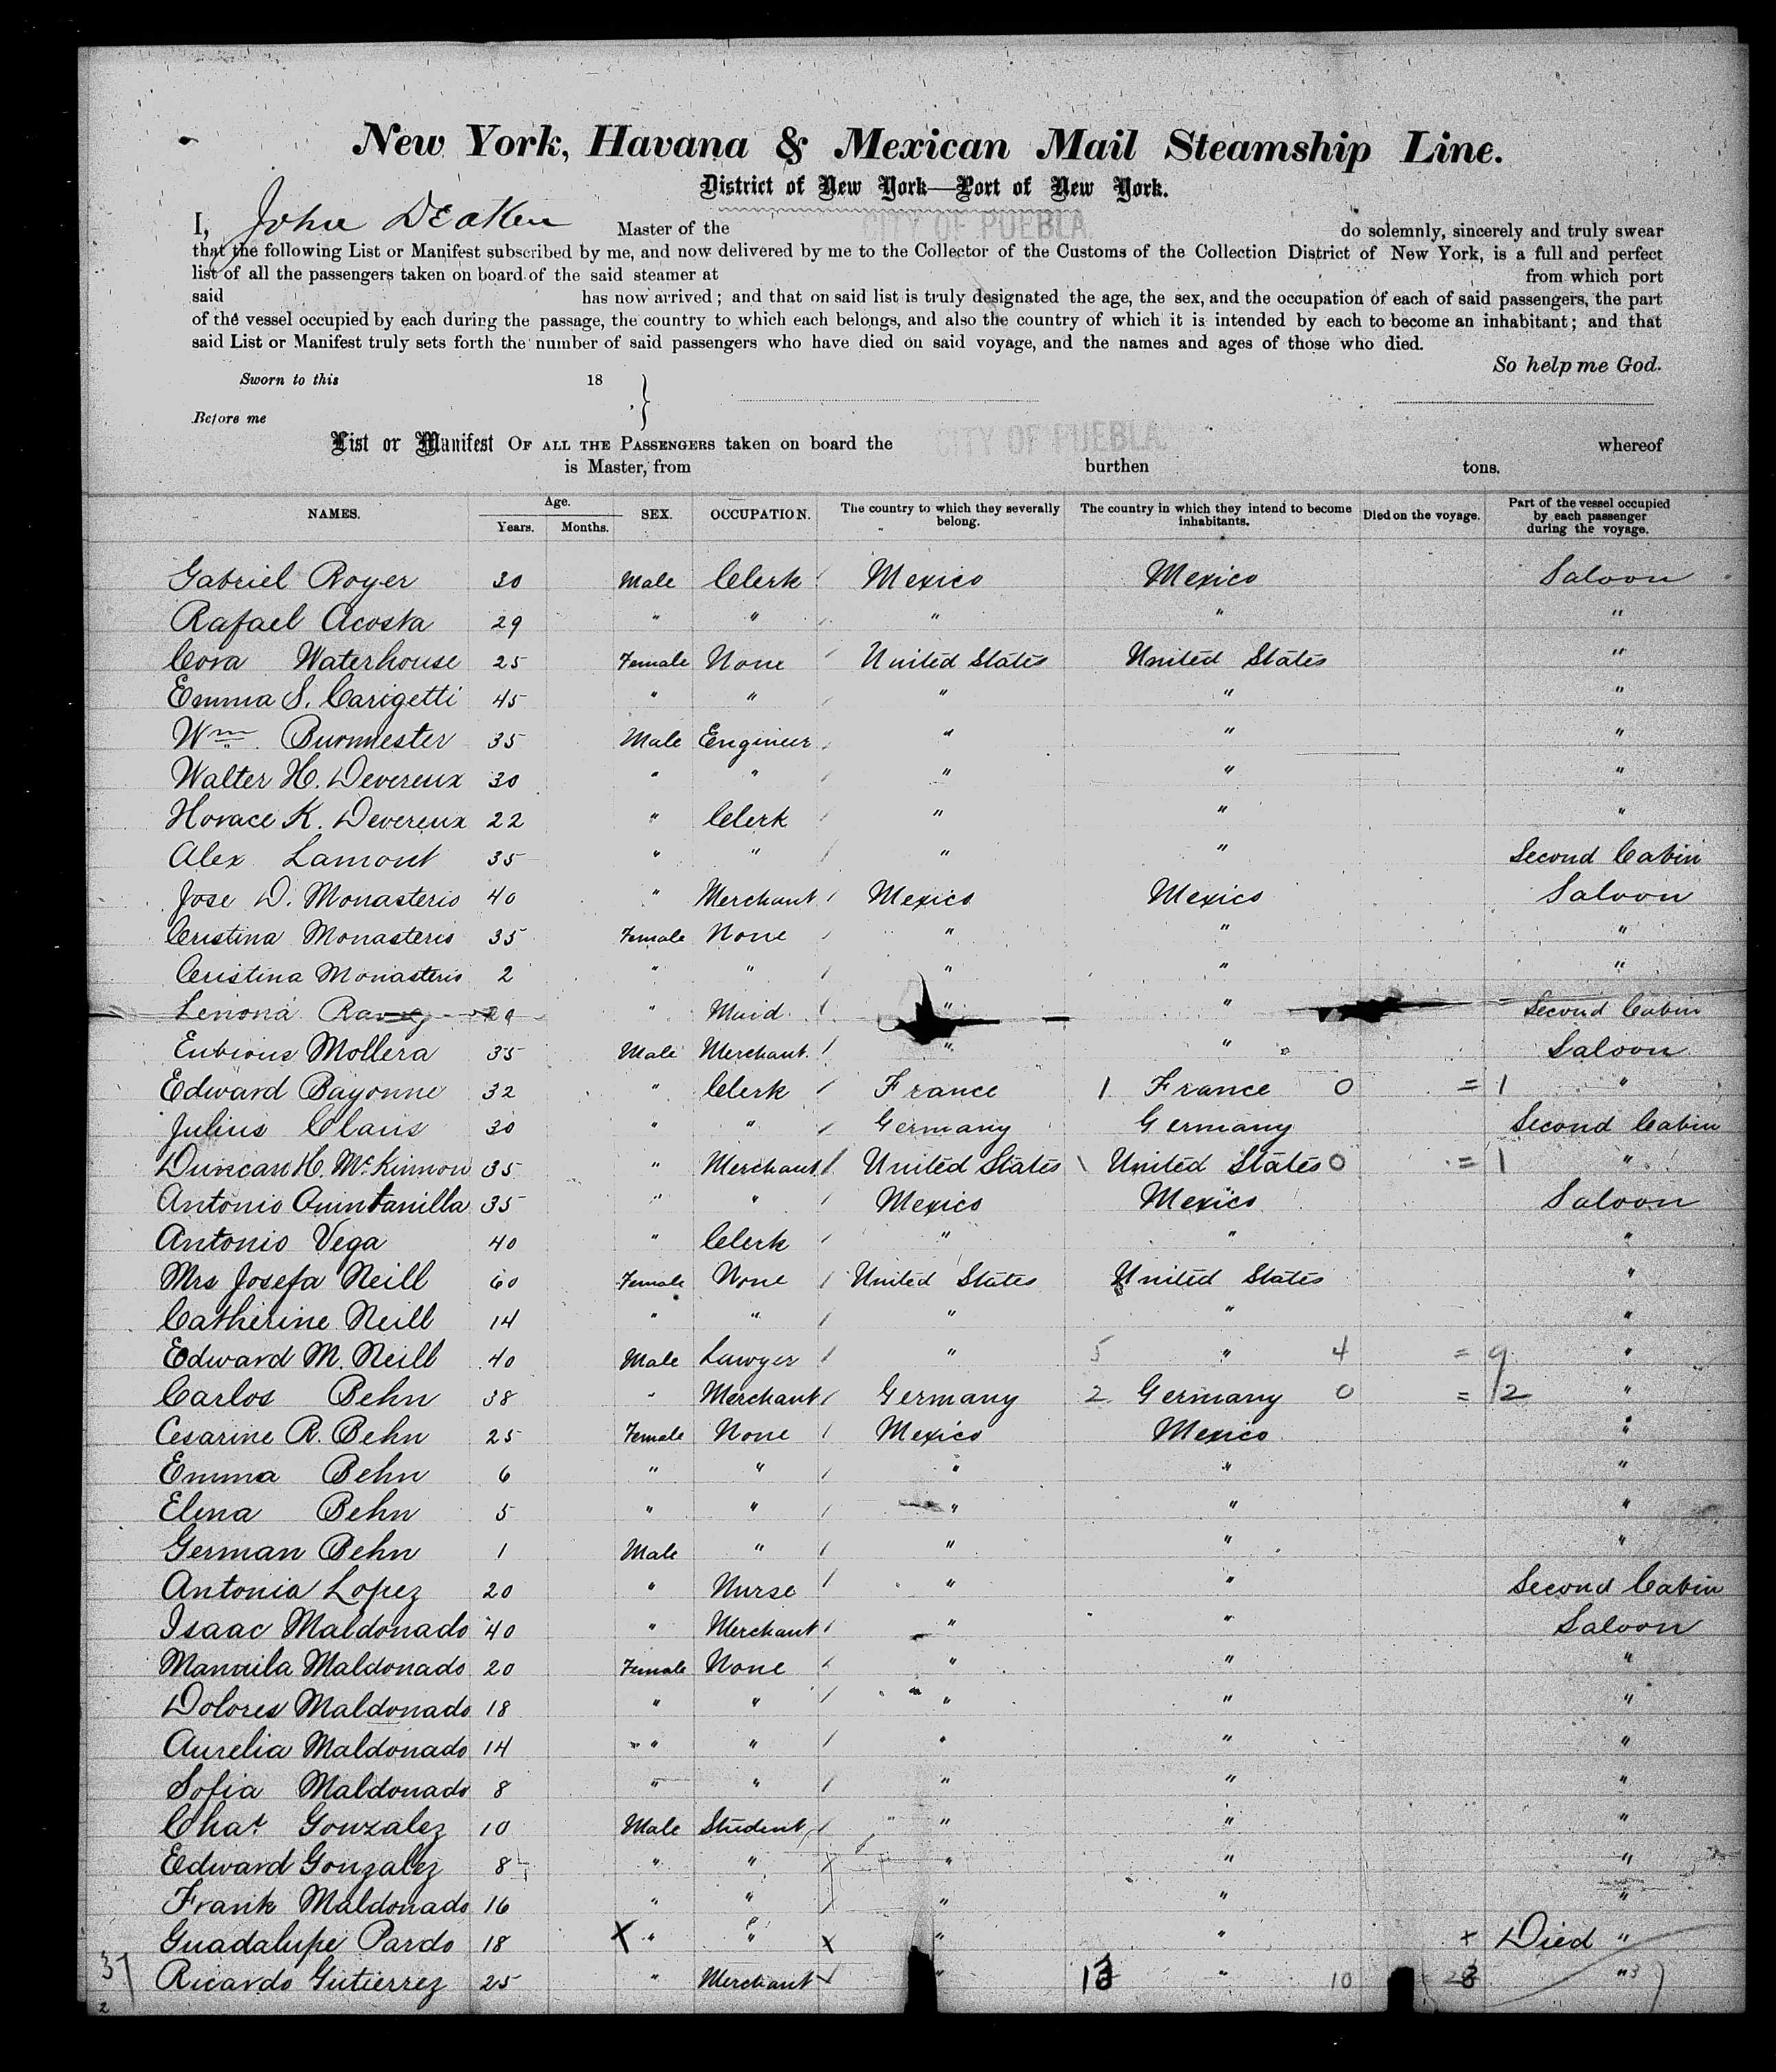 New York, Havana & Mexican Mail Steamship Line.
District of New York—Port of New York.
I, John Deaken Master of the CITY OF PUEBLA. do solemnly, sincerely and truly swear
that the following List or Manifest subscribed by me, and now delivered by me to the Collector of the Customs of the Collection District of New York, is a full and perfect
list of all the passengers taken on board of the said steamer at from which port
said has now arrived; and that on said list is truly designated the age, the sex, and the occupation of each of said passengers, the part
of the vessel occupied by each during the passage, the country to which each belongs, and also the country of which it is intended by each to become an inhabitant; and that
said List or Manifest truly sets forth the number of said passengers who have died on said voyage, and the names and ages of those who died.
So help me God.
Sworn to this 18
Before me
List or Manifest OF ALL THE PASSENGERS taken on board the CITY OF PUEBLA. whereof
is Master, from burthen tons.
NAMES. Age. Years. Months. SEX. OCCUPATION. The country to which they severally belong. The country in which they intend to become inhabitants. Died on the voyage. Part of the vessel occupied by each passenger during the voyage.
Gabriel Royer 30 Male Clerk / Mexico Mexico Saloon
Rafael Acosta 29 " " / " " "
Cora Waterhouse 25 Female None / United States United States "
Emma S. Carigetti 45 " " / " " "
Wm. Burmester 35 Male Engineer / " " "
Walter H. Devereux 30 " " / " " "
Horace K. Devereux 22 " Clerk / " " "
Alex Lamont 35 " " / " " Second Cabin
Jose D. Monasterio 40 " Merchant / Mexico Mexico Saloon
Cristina Monasterio 35 Female None / " " "
Cristina Monasterio 2 " " / " " "
Lenona 29 " Maid / " " Second Cabin
Mollera 35 Male Merchant / " " Saloon
Edward Bayonne 32 " Clerk / France 1 France 0 = 1 "
Julius Claus 30 " " / Germany Germany Second Cabin
Duncan H. McKinnon 35 " Merchant / United States \ United States 0 = 1 "
Antonio Quintanilla 35 " " / Mexico Mexico Saloon
Antonio Vega 40 " Clerk / " " "
Mrs Josefa Neill 60 Female None / United States United States "
Catherine Neill 14 " " / " " "
Edward M. Neill 40 Male Lawyer / " 5 " 4 = 9 "
Carlos Behn 38 " Merchant / Germany 2 Germany 0 = 2 "
Cesarine R. Behn 25 Female None / Mexico Mexico "
Emma Behn 6 " " / " " "
Elena Behn 5 " " / " " "
German Behn 1 Male " / " " "
Antonia Lopez 20 " Nurse / " " Second Cabin
Isaac Maldonado 40 " Merchant / " " Saloon
Manuila Maldonado 20 Female None / " " "
Dolores Maldonado 18 " " / " " "
Aurelia Maldonado 14 " " / " " "
Sofia Maldonado 8 " " / " " "
Chas Gonzalez 10 Male Student / " " "
Edward Gonzalez 8 " " / " " "
Frank Maldonado 16 " " / " " "
Guadalupe Pardo 18 X " " X " " x Died "
37 Ricardo Gutierrez 25 " Merchant / " 13 " 10 "
2